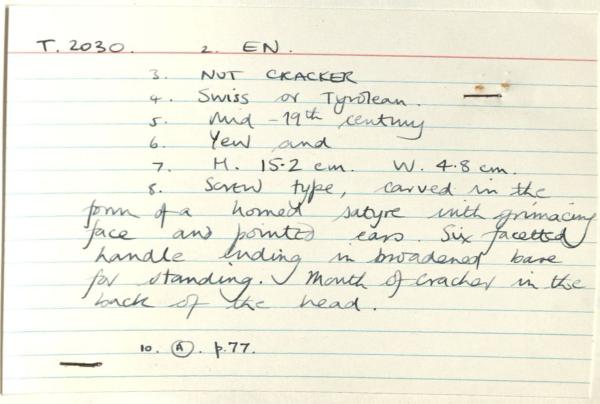 T. 2030. 2. EN.
3. NUT CRACKER
4. Swiss or Tyrolean.
5. Mid - 19th century
6. Yew and
7. H. 15.2 cm. W. 4.8 cm.
8. Screw type, carved in the
form of a horned satyre with grimacing
face and pointed ears. Six facetted
handle ending in broadened base
for standing. Mouth of cracker in the
back of the head.
10. (A). p.77.